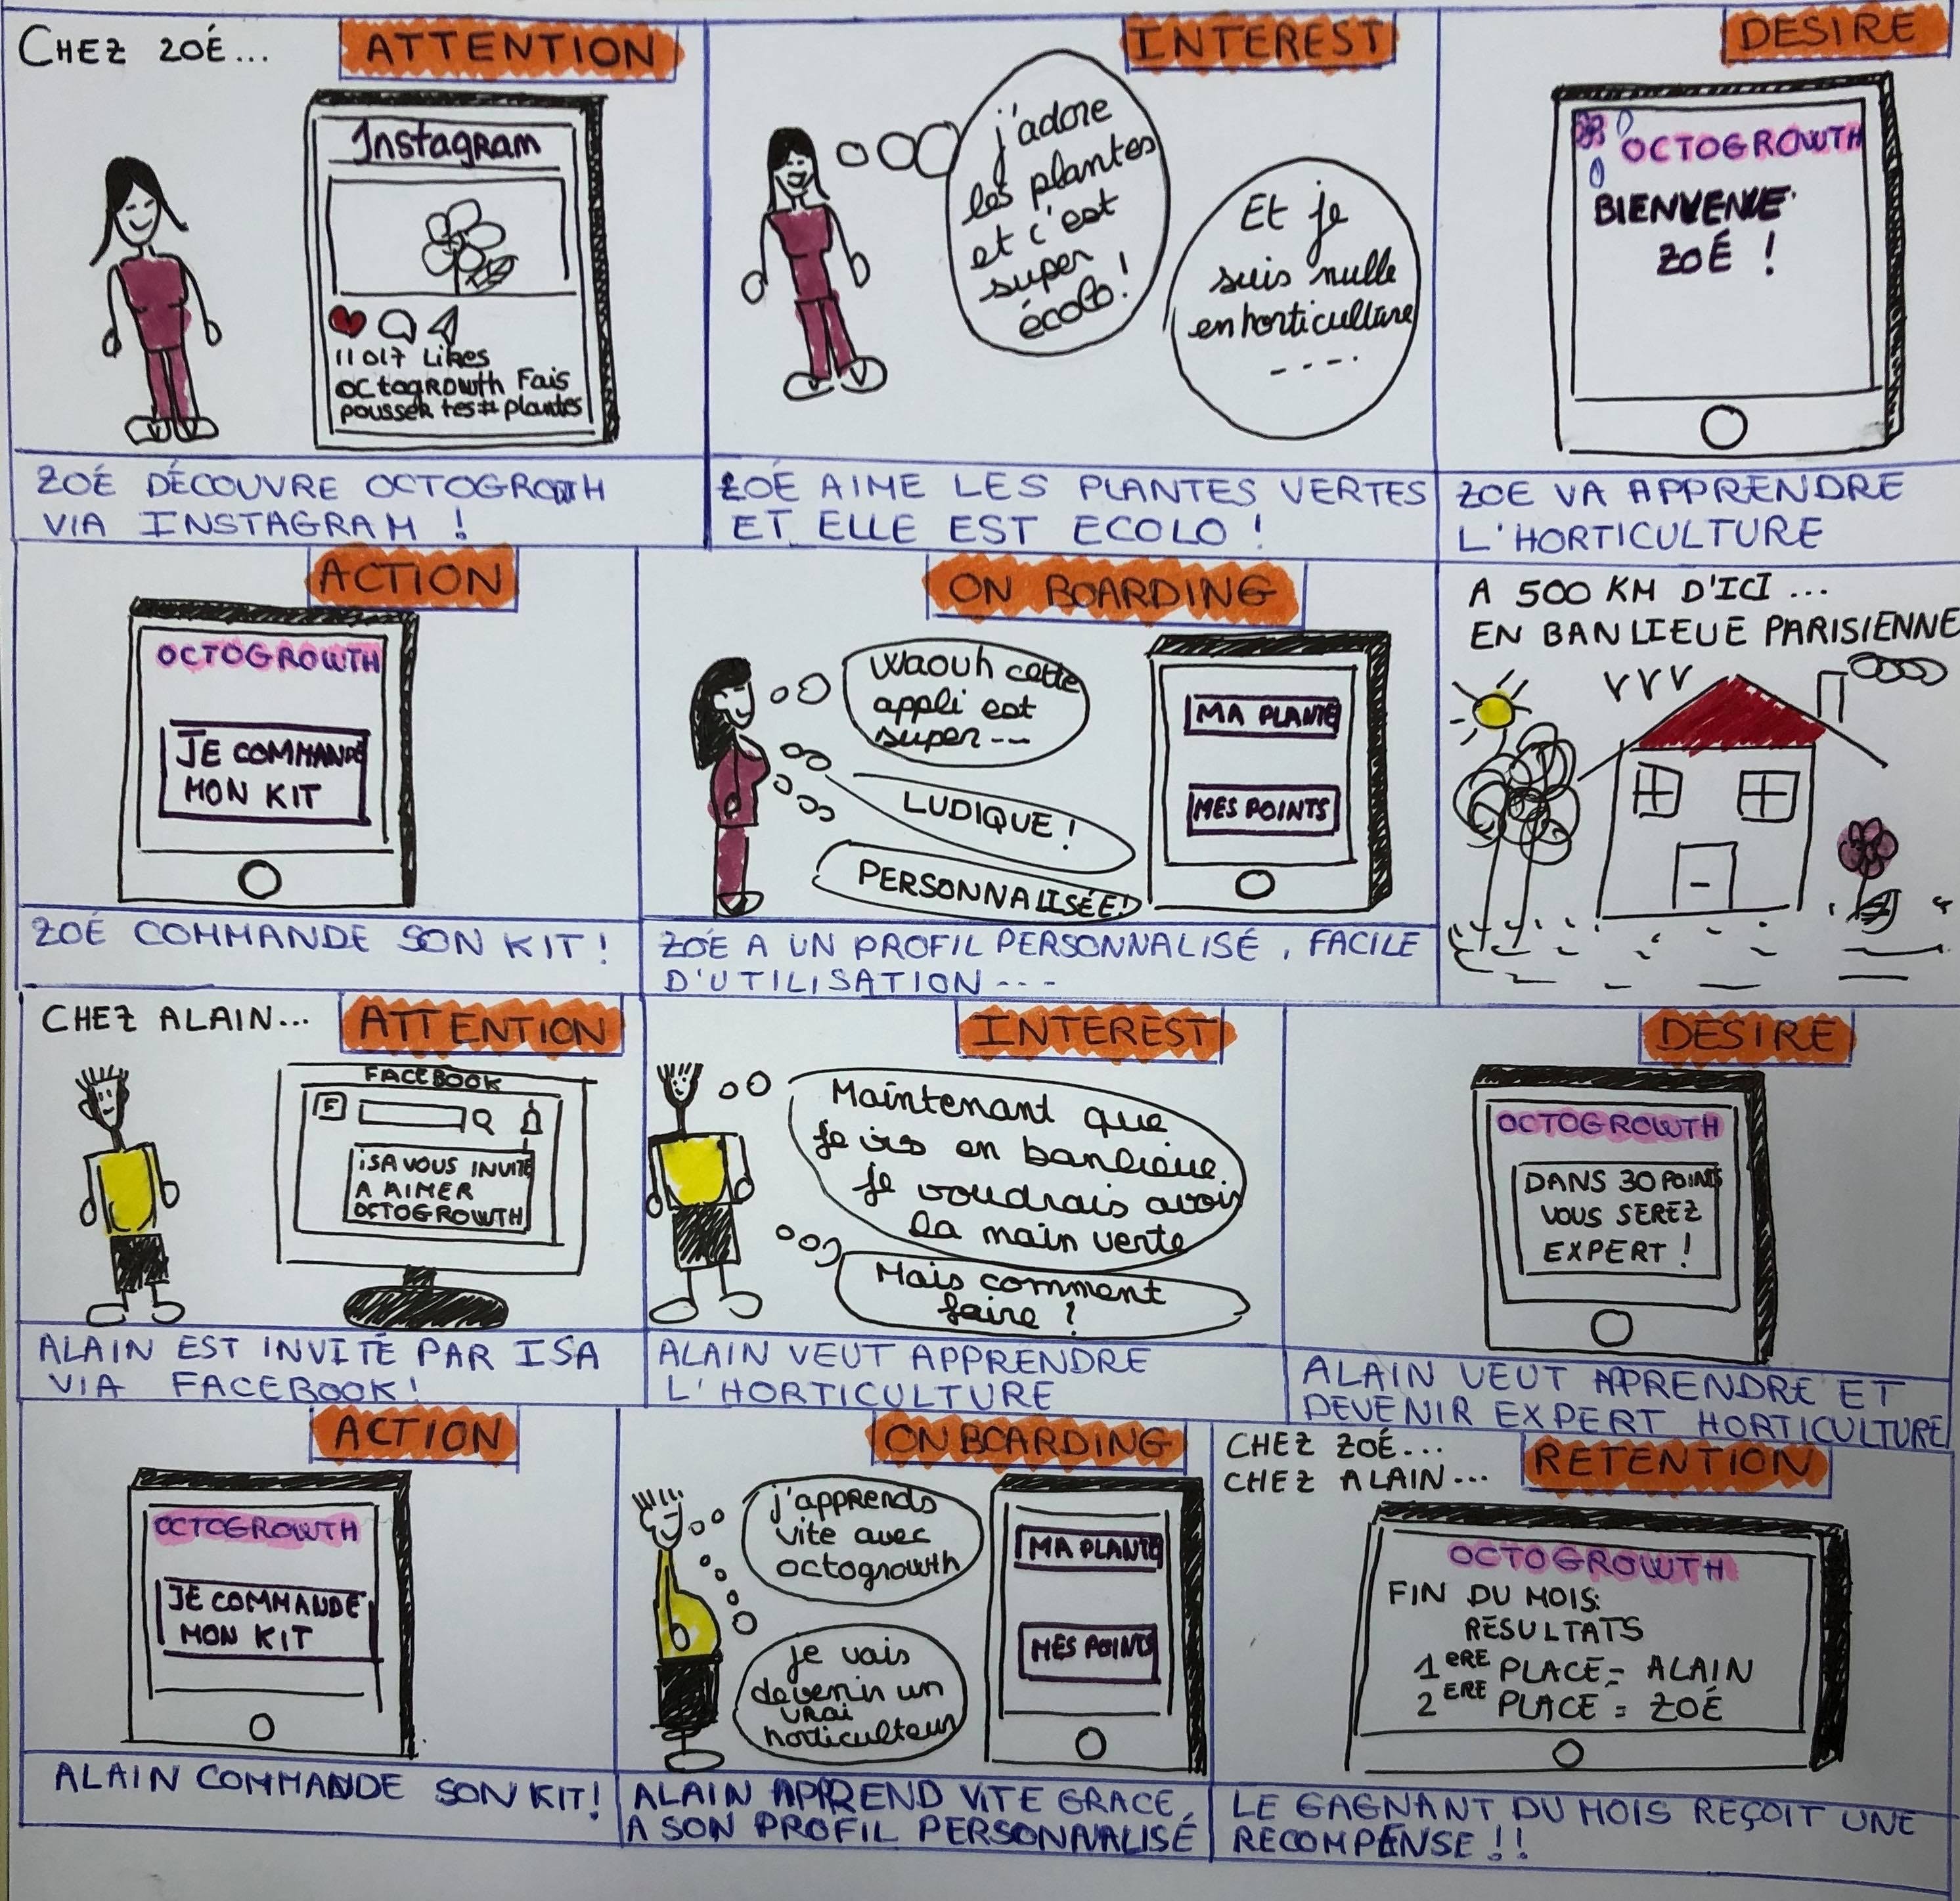 CHEZ ZOÉ...
ATTENTION
Instagram
11017 Likes
OCtogROWth Fais
pousser tes# plantes
ZOÉ DÉCOUVRE OCTOGROWTH
VIA INSTAGRAM !
INTEREST
j'adore
les plantes
et c'est
super
écolo !
Et je
suis nulle
en horticulture
----
ZOÉ AIME LES PLANTES VERTES
ET ELLE EST ECOLO !
DESIRE
OCTOGROWTH
BIENVENUE
ZOÉ !
ZOE VA APPRENDRE
L'HORTICULTURE
ACTION
OCTOGROWTH
JE COMMANDE
MON KIT
ZOÉ COMMANDE SON KIT !
ON BOARDING
Waouh cette
appli est
super --
LUDIQUE !
PERSONNALISÉE !
MA PLANTE
MES POINTS
ZOÉ A UN PROFIL PERSONNALISÉ, FACILE
D'UTILISATION ---
A 500 KM D'ICI ...
EN BANLIEUE PARISIENNE
CHEZ ALAIN...
ATTENTION
FACEBOOK
F
iSA VOUS INVITE
A AIMER
OCTOGROWTH
ALAIN EST INVITÉ PAR ISA
VIA FACEBOOK !
INTEREST
Maintenant que
je vis en banlieue
je voudrais avoir
la main verte
Mais comment
faire ?
ALAIN VEUT APPRENDRE
L'HORTICULTURE
DESIRE
OCTOGROWTH
DANS 30 POINTS
VOUS SEREZ
EXPERT !
ALAIN VEUT APRENDRE ET
DEVENIR EXPERT HORTICULTURE
ACTION
OCTOGROWTH
JE COMMANDE
MON KIT
ALAIN COMMANDE SON KIT !
ONBOARDING
j'apprends
vite avec
octogrowth
je vais
devenir un
vrai
horticulteur
MA PLANTE
MES POINTS
ALAIN APPREND VITE GRACE
A SON PROFIL PERSONNALISÉ
CHEZ ZOÉ...
CHEZ ALAIN...
RETENTION
OCTOGROWTH
FIN DU MOIS:
RESULTATS
1ERE PLACE = ALAIN
2ERE PLACE = ZOÉ
LE GAGNANT DU MOIS REÇOIT UNE
RECOMPENSE !!